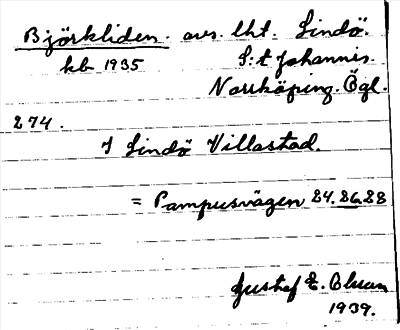 Björkliden. avs. lht. Lindö.
kb 1935 S:t Johannis.
Norrköping. Ögl.
274.
I Lindö Villastad.
= Pampusvägen 24.26.28
Gustef E. Olsson
1939.